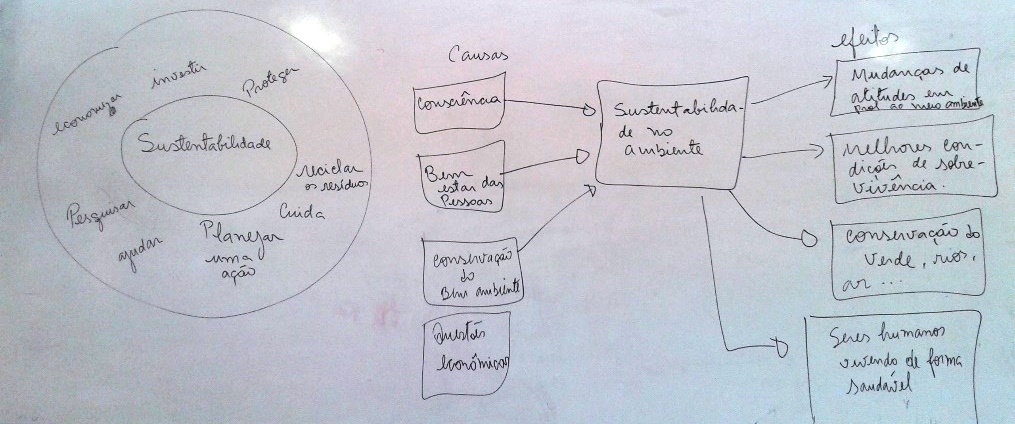 economizar
investir
Proteger
Sustentabilidade
reciclar
os resíduos
Cuida
Planejar
uma
ação
ajudar
Pesquisar
Causas
Consciência
Bem
estar das
Pessoas
Conservação
do
Bem ambiente
Questões
econômicas
Sustentabilida-
de no
ambiente
efeitos
Mudanças de
atitudes em
prol ao meio ambiente
Melhores con-
dições de sobre-
vivência.
Conservação do
Verde, rios,
ar ...
Seres humanos
vivendo de forma
saudável